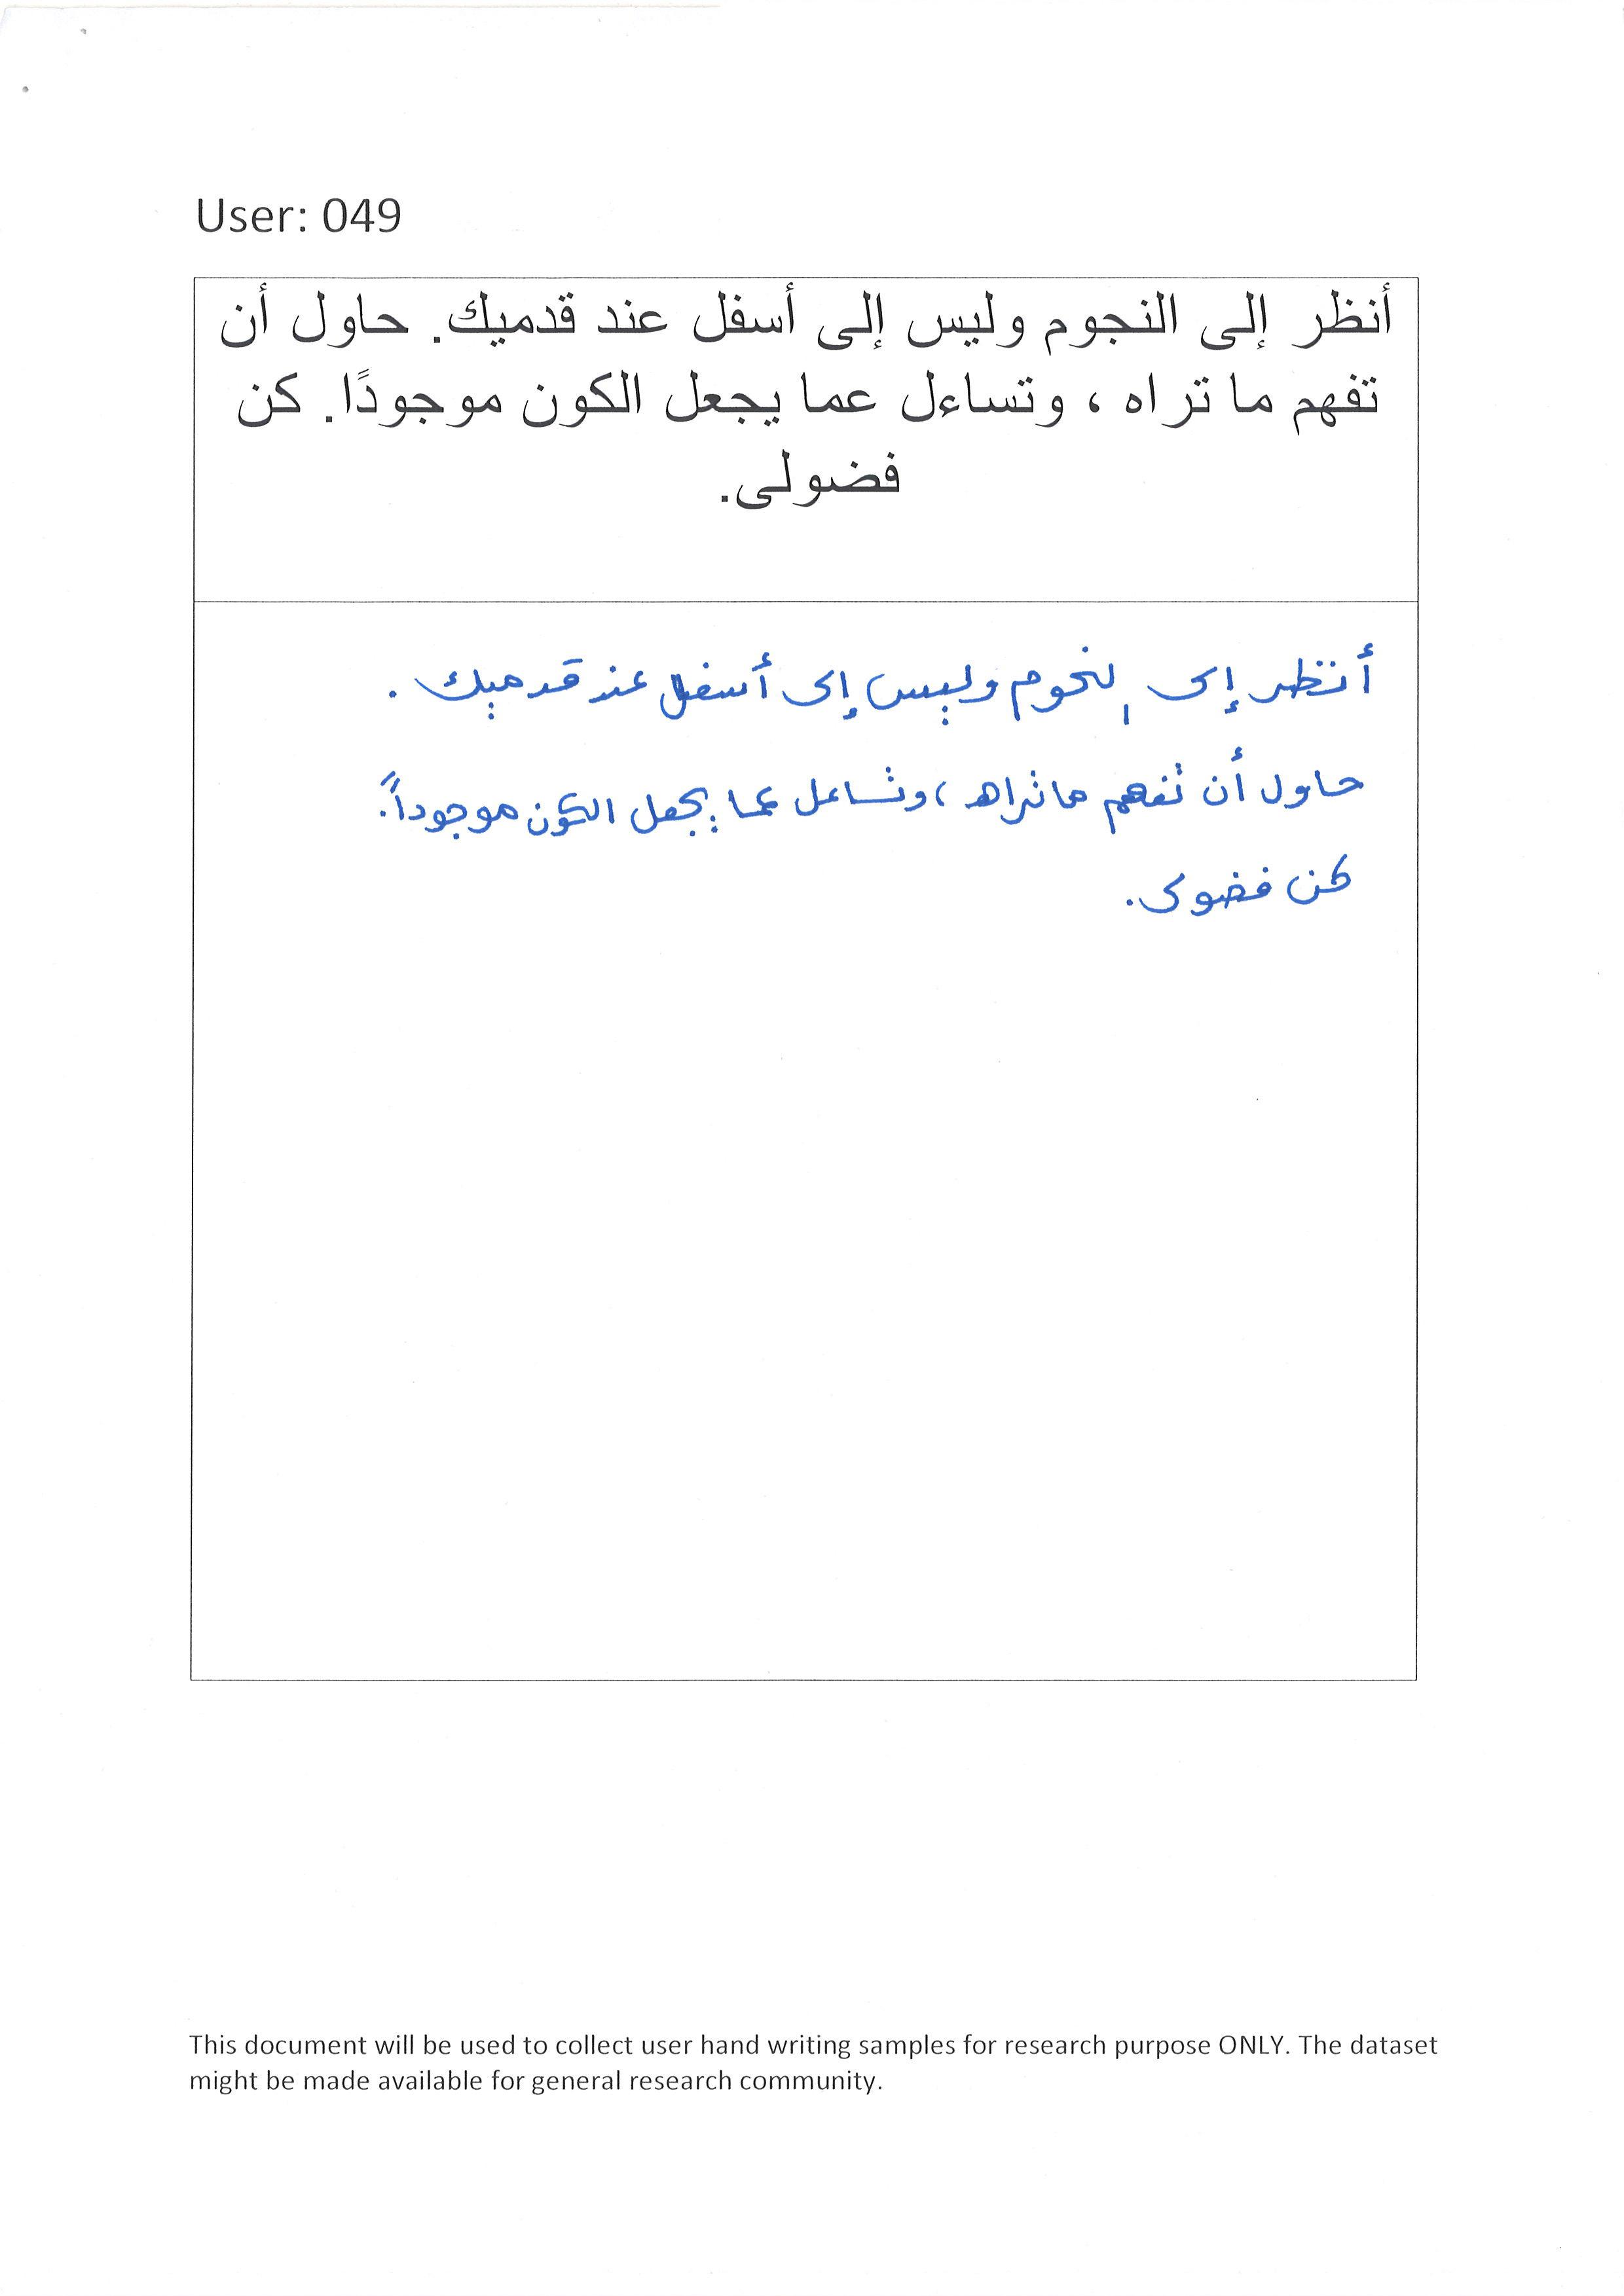 User: 049
أنظر إلى النجوم وليس إلى أسفل عند قدميك. حاول أن
تفهم ما تراه ، وتساءل عما يجعل الكون موجودًا. كن
فضولى.
أنظر إلى النجوم وليس إلى أسفل عند قدميك .
حاول أن تفهم ما تراه ، وتساءل عما يجعل الكون موجوداً.
كن فضولى.
This document will be used to collect user hand writing samples for research purpose ONLY. The dataset
might be made available for general research community.